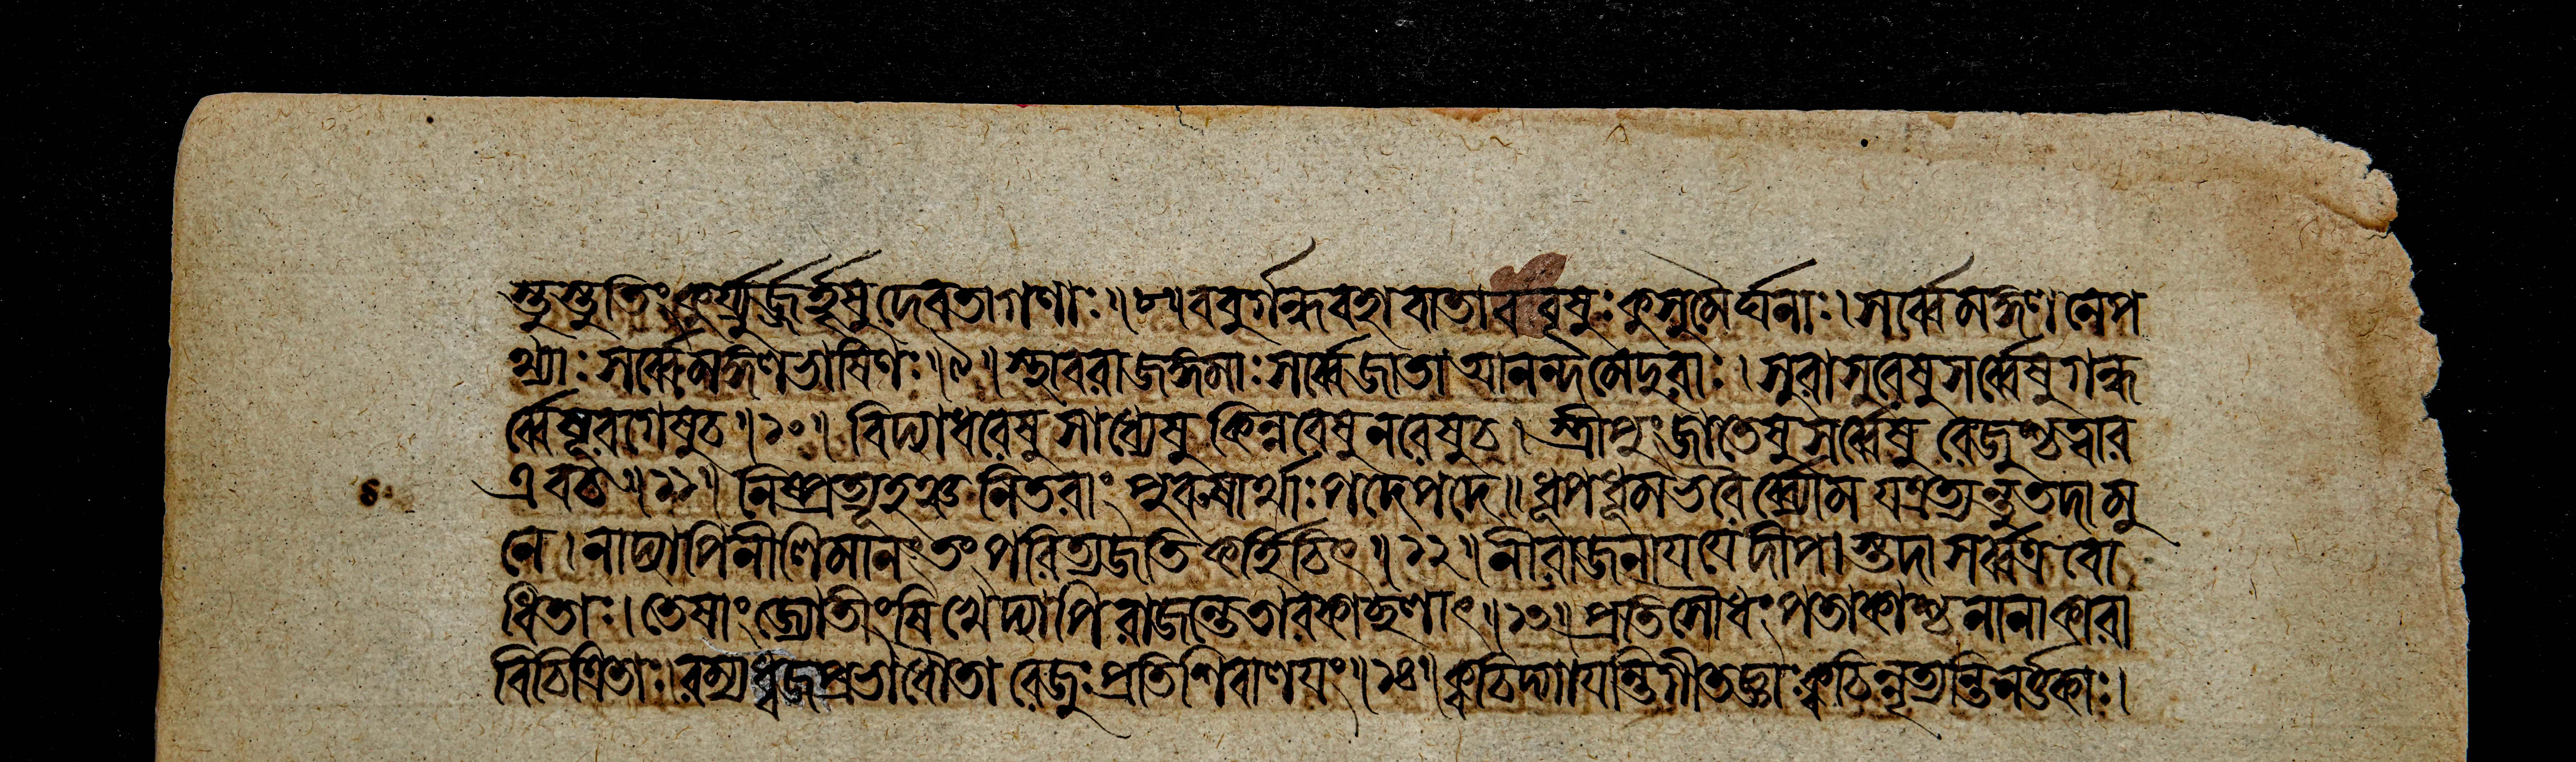 স্তুস্তুতিং কুর্য্যুর্জহৃষুর্দেবতাগণাঃ॥৮॥ববুর্গন্ধবহাবাতাববৃষুঃ কুসুমৈর্ঘনাঃ।সর্ব্বেমঙ্গলনেপ
থ্যাঃ সর্ব্বেমঙ্গলভাষিণঃ॥৯॥স্থাবরাজঙ্গমাঃ সর্ব্বেজাতাআনন্দমেদুরাঃ।সুরাসুরেষুসর্ব্বেষুগন্ধ
র্ব্বেষূরগেষুচ॥১০॥ বিদ্যাধরেষুসাধ্যেষু কিন্নরেষুনরেষুচ। স্ত্রীপুংজাতেষুসর্ব্বেষু রেজুশ্চত্বার
এবচ॥১১॥ নিষ্প্রত্যূহঞ্চনিতরাং পুরুষার্থাঃ পদেপদে॥ধূপধূমভরৈর্ব্ব্যোম যত্রত্যন্তুতদামু
নে।নাদ্যাপিনীলিমানং তং পরিত্যজতিকর্হিচিৎ॥১২॥নীরাজনাযযেদীপাস্তদাসর্ব্বত্রবো
ধিতাঃ।তেষাংজ্যোতীংষিখেদ্যাপিরাজন্তেতারকাছলাৎ॥১৩॥প্রতিসৌধংপতাকাশ্চনানাকারা
বিচিত্রিতাঃ।রম্যধ্বজপ্রভাধৌতা রেজুঃপ্রতিশিবালযং॥১৪॥ক্বচিদ্গাযন্তিগীতজ্ঞাঃক্বচিন্নৃত্যন্তিনর্ত্তকাঃ।